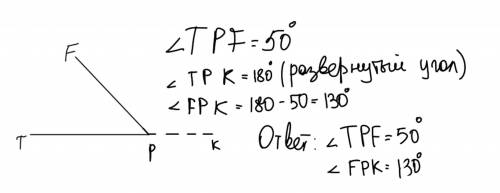 ∠TPF = 50°
∠TPK = 180° (развернутый угол)
∠FPK = 180 - 50 = 130°
Ответ: ∠TPF = 50°
∠FPK = 130°
F
T
P
K